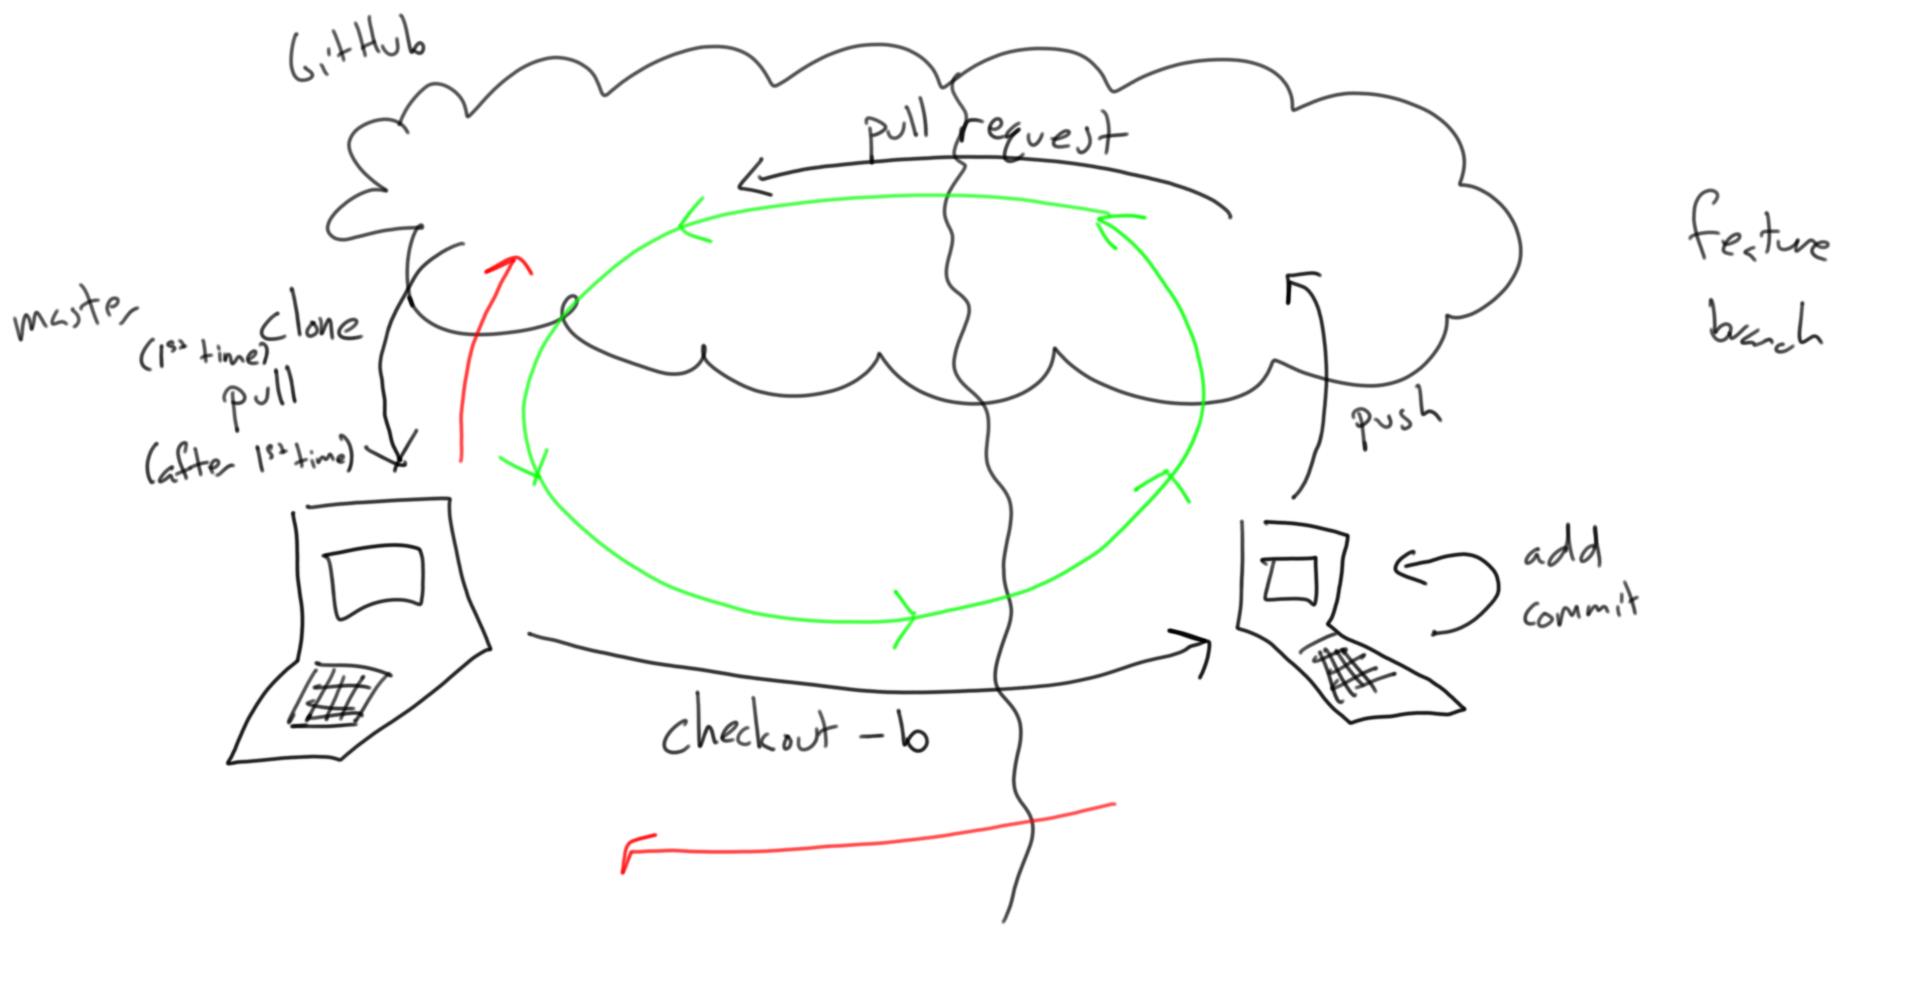 GitHub
pull request
feature
branch
master
clone
(1st time)
pull
(after 1st time)
push
add
commit
checkout -b